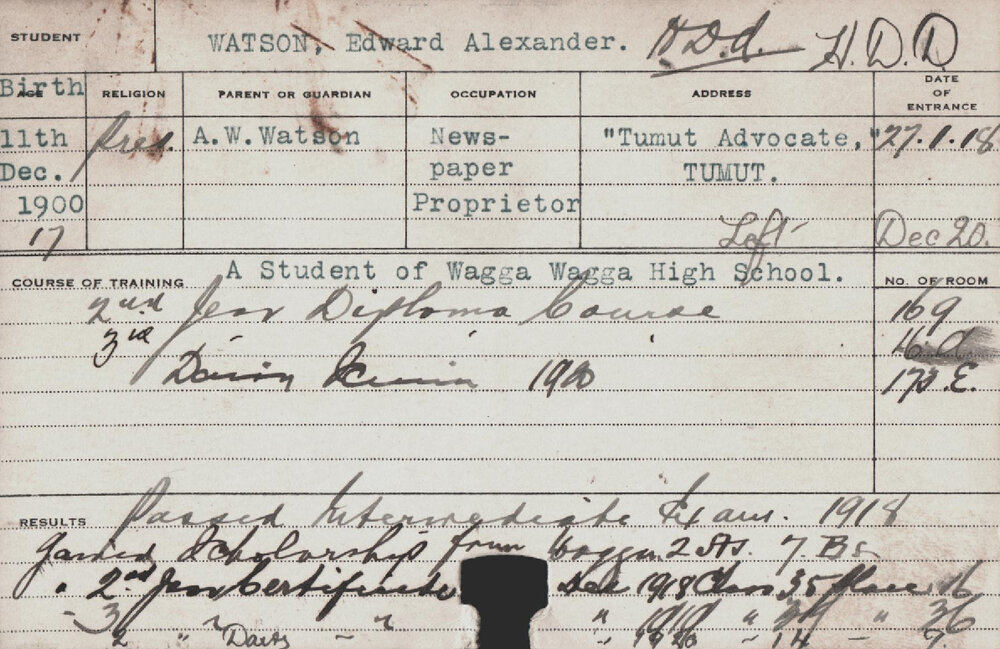 STUDENT WATSON, Edward Alexander. H.D.d. H.D.D
Birth AGE RELIGION PARENT OR GUARDIAN OCCUPATION ADDRESS DATE OF ENTRANCE
11th Pres. A.W.Watson News- "Tumut Advocate," 27.1.18
Dec. paper TUMUT.
1900 Proprietor
17 Left Dec 20.
COURSE OF TRAINING A Student of Wagga Wagga High School. NO. OF ROOM
2nd Year Diploma Course 169
3rd
1920 173.E.
RESULTS Passed Intermediate Exam. 1918
Gained Scholarship from Wagga 2 As. 7. Bs
" 2nd Year Certificate Dec 1918 Class 35 Place 16
- 3 " " " 1919 " " 36
2 " Dairy - " " 1920 - 14 - 7